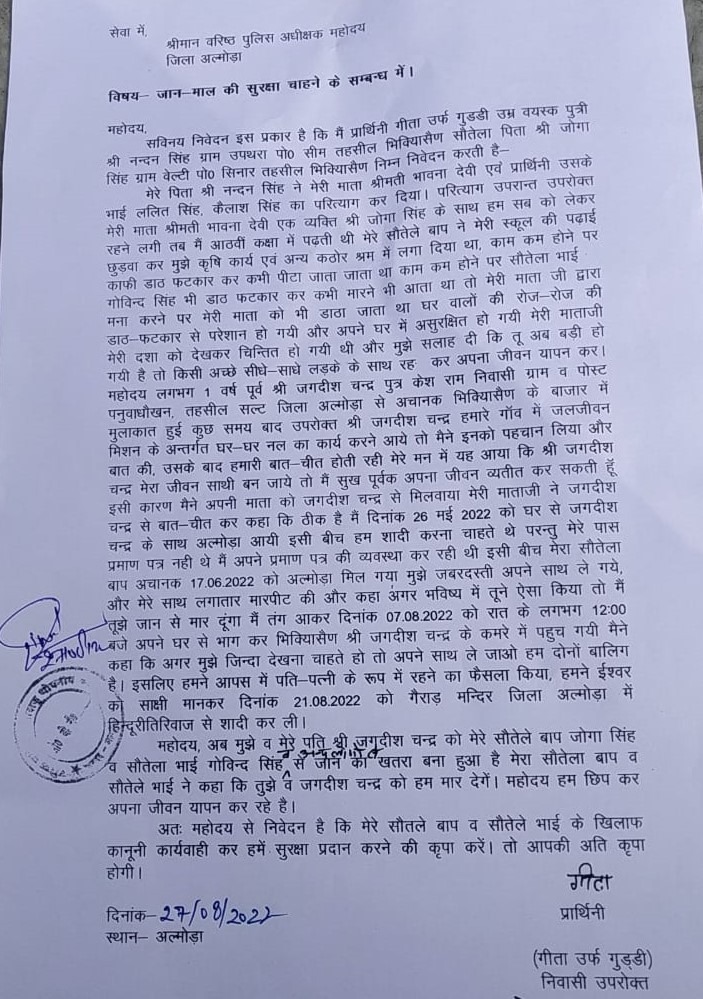 सेवा में,
श्रीमान वरिष्ठ पुलिस अधीक्षक महोदय
जिला अल्मोड़ा
विषय– जान–माल की सुरक्षा चाहने के सम्बन्ध में।
महोदय,
सविनय निवेदन इस प्रकार है कि मैं प्रार्थिनी गीता उर्फ गुडडी उम्र वयस्क पुत्री
श्री नन्दन सिंह ग्राम उपथरा पो0 सीम तहसील भिक्यिासैण सौतेला पिता श्री जोगा
सिंह ग्राम वेल्टी पो0 सिनार तहसील भिक्यिासैण निम्न निवेदन करती है–
मेरे पिता श्री नन्दन सिंह ने मेरी माता श्रीमती भावना देवी एवं प्रार्थिनी उसके
भाई ललित सिंह, कैलाश सिंह का परित्याग कर दिया। परित्याग उपरान्त उपरोक्त
मेरी माता श्रीमती भावना देवी एक व्यक्ति श्री जोगा सिंह के साथ हम सब को लेकर
रहने लगी तब मैं आठवीं कक्षा में पढती थी मेरे सौतेले बाप ने मेरी स्कूल की पढ़ाई
छुड़वा कर मुझे कृषि कार्य एवं अन्य कठोर श्रम में लगा दिया था, काम कम होने पर
काफी डाठ फटकार कर कभी पीटा जाता जाता था काम कम होने पर सौतेला भाई
गोविन्द सिंह भी डाठ फटकार कर कभी मारने भी आता था तो मेरी माता जी द्वारा
मना करने पर मेरी माता को भी डाठा जाता था घर वालों की रोज–रोज की
डाठ–फटकार से परेशान हो गयी और अपने घर में असुरक्षित हो गयी मेरी माताजी
मेरी दशा को देखकर चिन्तित हो गयी थी और मुझे सलाह दी कि तू अब बड़ी हो
गयी है तो किसी अच्छे सीधे–साधे लड़के के साथ रह कर अपना जीवन यापन कर।
महोदय लगभग 1 वर्ष पूर्व श्री जगदीश चन्द्र पुत्र केश राम निवासी ग्राम व पोस्ट
पनुवाधौखन, तहसील सल्ट जिला अल्मोड़ा से अचानक भिक्यिासैण के बाजार में
मुलाकात हुई कुछ समय बाद उपरोक्त श्री जगदीश चन्द्र हमारे गॉव में जलजीवन
मिशन के अन्तर्गत घर–घर नल का कार्य करने आये तो मैने इनको पहचान लिया और
बात की, उसके बाद हमारी बात–चीत होती रही मेरे मन में यह आया कि श्री जगदीश
चन्द्र मेरा जीवन साथी बन जाये तो मैं सुख पूर्वक अपना जीवन व्यतीत कर सकती हूँ
इसी कारण मैने अपनी माता को जगदीश चन्द्र से मिलवाया मेरी माताजी ने जगदीश
चन्द्र से बात–चीत कर कहा कि ठीक है मैं दिनांक 26 मई 2022 को घर से जगदीश
चन्द्र के साथ अल्मोड़ा आयी इसी बीच हम शादी करना चाहते थे परन्तु मेरे पास
प्रमाण पत्र नही थे मैं अपने प्रमाण पत्र की व्यवस्था कर रही थी इसी बीच मेरा सौतेला
बाप अचानक 17.06.2022 को अल्मोड़ा मिल गया मुझे जबरदस्ती अपने साथ ले गये,
और मेरे साथ लगातार मारपीट की और कहा अगर भविष्य में तूने ऐसा किया तो मैं
तूझे जान से मार दूंगा मैं तंग आकर दिनांक 07.08.2022 को रात के लगभग 12:00
बजे अपने घर से भाग कर भिक्यिासैण श्री जगदीश चन्द्र के कमरे में पहुच गयी मैने
कहा कि अगर मुझे जिन्दा देखना चाहते हो तो अपने साथ ले जाओ हम दोनों बालिग
है। इसलिए हमने आपस में पति–पत्नी के रूप में रहने का फैसला किया, हमने ईश्वर
को साक्षी मानकर दिनांक 21.08.2022 को गैराड़ मन्दिर जिला अल्मोड़ा में
हिन्दूरीतिरिवाज से शादी कर ली।
महोदय, अब मुझे व मेरे पति श्री जगदीश चन्द्र को मेरे सौतेले बाप जोगा सिंह
व सौतेला भाई गोविन्द सिंह से जान का खतरा बना हुआ है मेरा सौतेला बाप व
सौतेले भाई ने कहा कि तुझे व जगदीश चन्द्र को हम मार देगें। महोदय हम छिप कर
अपना जीवन यापन कर रहे है।
अतः महोदय से निवेदन है कि मेरे सौतले बाप व सौतेले भाई के खिलाफ
कानूनी कार्यवाही कर हमें सुरक्षा प्रदान करने की कृपा करें। तो आपकी अति कृपा
होगी।
गीता
दिनांक– 27/08/2022
प्रार्थिनी
स्थान– अल्मोड़ा
(गीता उर्फ गुड्डी)
निवासी उपरोक्त